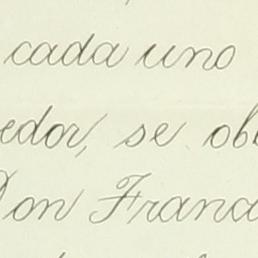 cada uno
edor, se ob
Don Franc